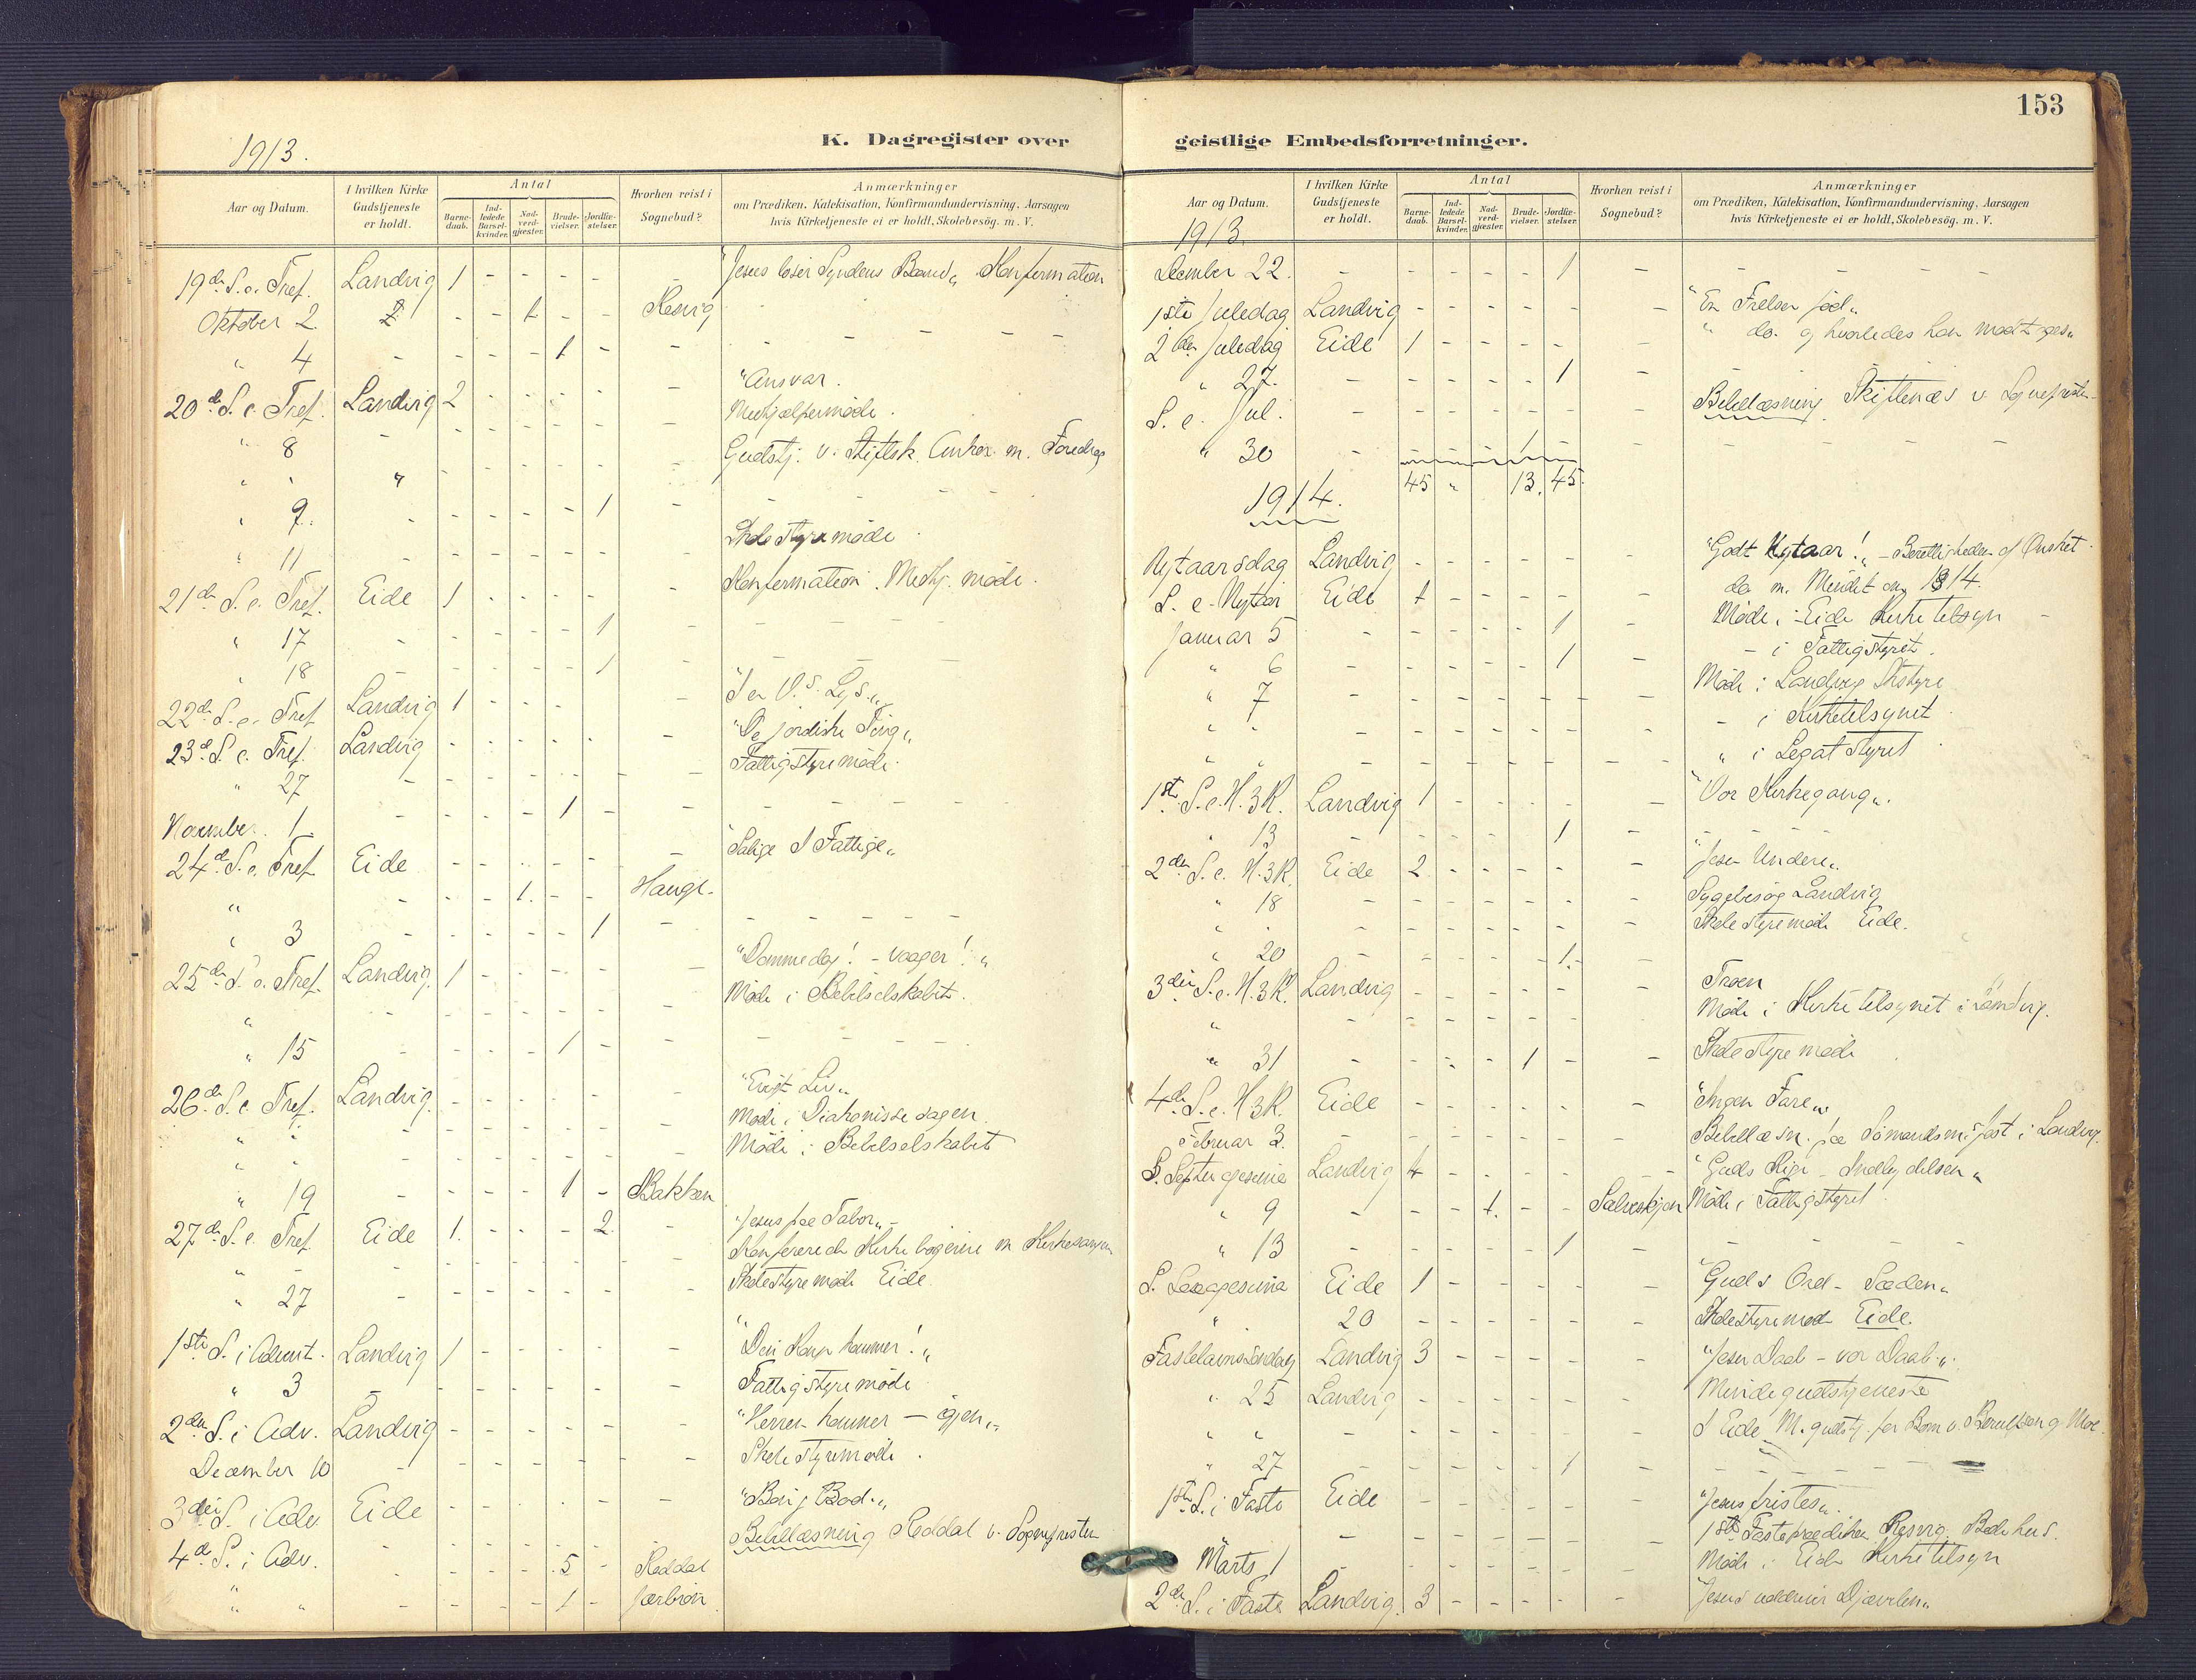 K. Dagregister over
1913.
Aar og Datum.
I hvilken Kirke Gudstjeneste er holdt.
Antal
Barnedaab.
Indledede Barselkvinder.
Nadverdgjæster.
Brudevielser.
Jordfæstelser.
Hvorhen reist i Sognebud?
Anmærkninger
om Prædiken, Katekisation, Konfirmandundervisning, Aarsagen
hvis Kirketjeneste ei er holdt, Skolebesög. m. V.
19de S. e. Tref. Landvig 1 - - - - - "Jesus løser Syndens Baand„ Konfirmation
Oktober 2 - - 1 - - Resvig -
" 4 - - - - 1 - - -
20de S. e. Tref. Landvig 2 - - - - - "Ansvar.
" 8 - - - - - - Medhjælpermøde.
" " " - - - - - - Gudstj. v. Stiftsk. m. Foredrag
" 9. - - - - - 1 - -
" 11 - - - - - - - Skolestyremøde
21de S. e. Tref. Eide 1 - - - - - Konfirmation. Medhj. møde.
" 17 - - - - - 1 - -
" 18 - - - - - 1 - -
22de S. e. Tref Landvig 1 - - - - - "I er V.s Lys.„
23de S. e. Tref. Landvig - - - - - - "De jordiske Ting„
" 27 - - - - - - - Fattigstyremøde.
November 1 - - - - 1 - - -
24de S. e. Tref Eide - - - - - - "Salige I Fattige„
" - - - 1. - - Hauge.
" 3 - - - - - 1 - -
25de S. e. Tref. Landvig. 1 - - - - - "Dommedag! - vaager!„
" - - - - - - - Møde i Bibelselskabet.
" 15 - - - - 1 - - -
26de S. e. Tref. Landvig. - - - - - - "Evigt Liv„
" " - - - - - - - Møde i Diakonissesagen
" " - - - - - - - Møde i Bibelselskabet
" 19 - - - - 1 - Bakken
27de S. e. Tref. Eide 1. - - - 2. - "Jesus paa Tabor„ -
" - - - - - - - Konfererede Kirkebøgerne m Kirkesangeren
" 27 - - - - - - - Skolestyremøde Eide.
1ste S. i Advent. Landvig 1 - - - - - "Din Konge kommer!„
" 3 - - - - - - - Fattigstyremøde
2den S. i Adv. Landvig - - - - - - "Herren kommer - igjen„
December 10 - - - - - - - Skolestyremøde.
3die S. i Adv. Eide - - - - - - "Bøn Bod.„
4de S. i Adv. - - - - - - Bibellæsning Reddal v. Sognepresten
- - - - 5 - Reddal
" " - - - - 1 -
153
geistlige Embedsforretninger.
Aar og Datum.
I hvilken Kirke Gudstjeneste er holdt.
Antal
Barnedaab.
Indledede Barselkvinder.
Nadverdgjæster.
Brudevielser.
Jordfæstelser.
Hvorhen reist i Sognebud?
Anmærkninger
om Prædiken, Katekisation, Konfirmandundervisning, Aarsagen
hvis Kirketjeneste ei er holdt, Skolebesög. m. V.
1913.
December 22. - - - - - 1 - -
1ste Juledag Landvig - - - - - - "En Frelser fød„
2den Juledag Eide 1 - - - - - " do. og hvorledes han modtages„
" 27. - - - - - 1 - -
S. e. Jul. - - - - - - - Bibellæsning Skiftenæs v. Sognepresten
" 30 - - - - 1 - - -
45 " 13. 45.
1914.
Nytaarsdag Landvig - - - - - - "Godt Nytaar!„ - Berettigheden af Ønsket.
S. e. Nytaar Eide 1 - - - - - do m. Mindet om 1814.
Januar 5 - - - - - 1 - Møde i Eide Kirketilsyn
" 6 - - - - - 1 - - i Fattigstyret.
" 7 - - - - - - - Møde i Landvig Skstyre
" " - - - - - - - - i Kirketilsynet
" " - - - - - - - " i Legatstyret
1ste S. e. H. 3 K. Landvig 1 - - - - - "Vor Kirkegang„.
" 13 - - - - - 1 - -
2den S. e. H. 3 K. Eide 2 - - - - - "Jesu Undere„
" 18 - - - - - - - Sygebesøg Landvig
" " - - - - - - - Skolestyremøde Eide.
" 20 - - - - - 1. -
3die S. e. H. 3 K. Landvig - - - - - - Troen
" - - - - - - - Møde i Kirketilsynet i Landvig.
" 31 - - - - 1 - - Skolestyremøde
4de S. e. H. 3 K. Eide - - - - - - "Ingen Fare„
Februar 3. - - - - - - - Bibellæsn. paa Sømandsm.fest i Landvig.
S. Septuagesima Landvig 4 - - - - - "Guds Rige - Indbydelsen„
" 9 - - - 1. - - Møde i Fattigstyret
" 13 - - - - - 1 - -
S. Sexagesima Eide 1 - - - - - "Guds Ord - Sæden„
" 20 - - - - - - Skolestyremøde Eide.
Fastelavns Søndag Landvig 3 - - - - - "Jesu Daab - vor Daab„.
" 25 Landvig - - - - - - Mindegudstjeneste
" " - - - - - - - I Eide M. gudstj. for Børn v.
" 27 - - - - - 1 - -
1ste S. i Faste Eide - - - - - - "Jesus fristes„.
" - - - - - - - 1ste Fasteprædiken Resvig Bedehus.
Marts 1 - - - - - - - Møde i Eide Kirketilsyn
2den S. i Faste Landvig. 3 - - - - - "Jesus uddriver Djævelen„